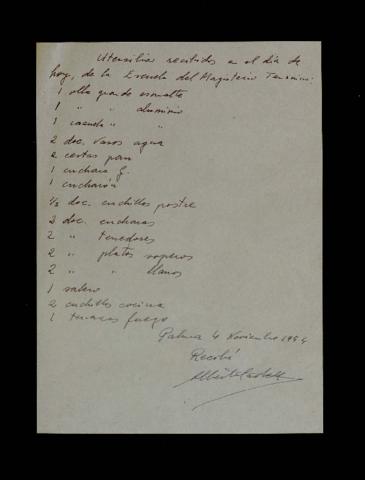 Utensilios recibidos en el día de
hoy, de la Escuela del Magisterio Femenino:
1 olla grande esmalte
1 " " aluminio
1 cazuela " "
2 doc. vasos agua
2 cestas pan
1 cuchara g.
1 cucharón
1/2 doc. cuchillos postre
2 doc. cucharas
2 " tenedores
2 " platos soperos
2 " " llanos
1 salero
2 cuchillos cocina
1 tenazas fuego
Palma 4 Noviembre 1954
Recibí